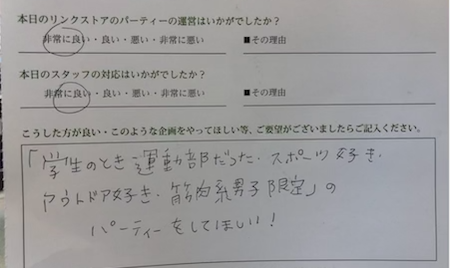 本日のリンクストアのパーティーの運営はいかがでしたか？
非常に良い・良い・悪い・非常に悪い ■その理由
本日のスタッフの対応はいかがでしたか？
非常に良い・良い・悪い・非常に悪い ■その理由
こうした方が良い・このような企画をやってほしい等、ご要望がございましたらご記入ください。
「学生のとき運動部だった・スポーツ好き・
アウトドア好き・筋肉系男子限定」の
パーティーをしてほしい！